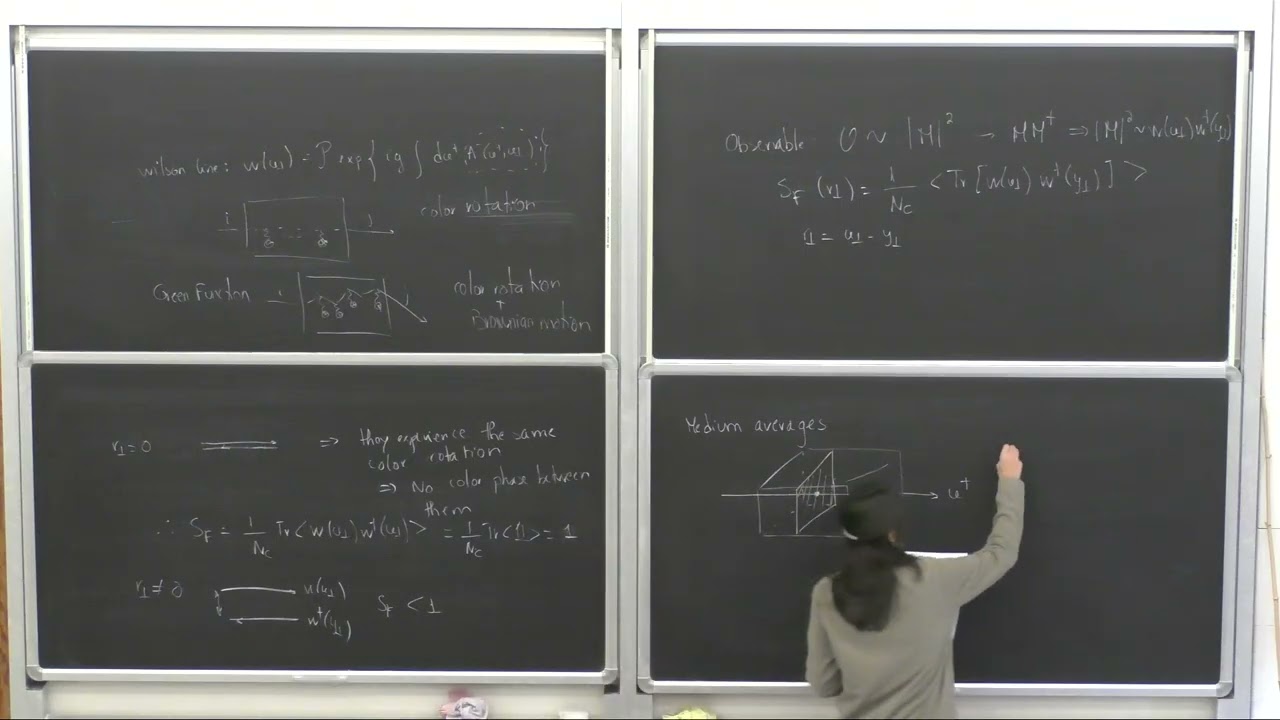 wilson line: W(x⊥) = P exp{ ig ∫ dx⁺ A⁻(x⁺, x⊥) }
i j color rotation
Green Function i j color rotation
+
Brownian motion
r⊥ = 0 ⇒ they experience the same
color rotation
⇒ No color phase between
them
∴ S_F = 1/N_c Tr<W(x⊥) W†(x⊥)> = 1/N_c Tr<1> = 1
r⊥ ≠ 0 W(x⊥) S_F < 1
W†(y⊥)
Observable O ~ |M|² → MM† ⇒ |M|² ~ W(x⊥) W†(y⊥)
S_F (r⊥) = 1/N_c < Tr [W(x⊥) W†(y⊥)] >
r⊥ = x⊥ - y⊥
Medium averages
x⁺